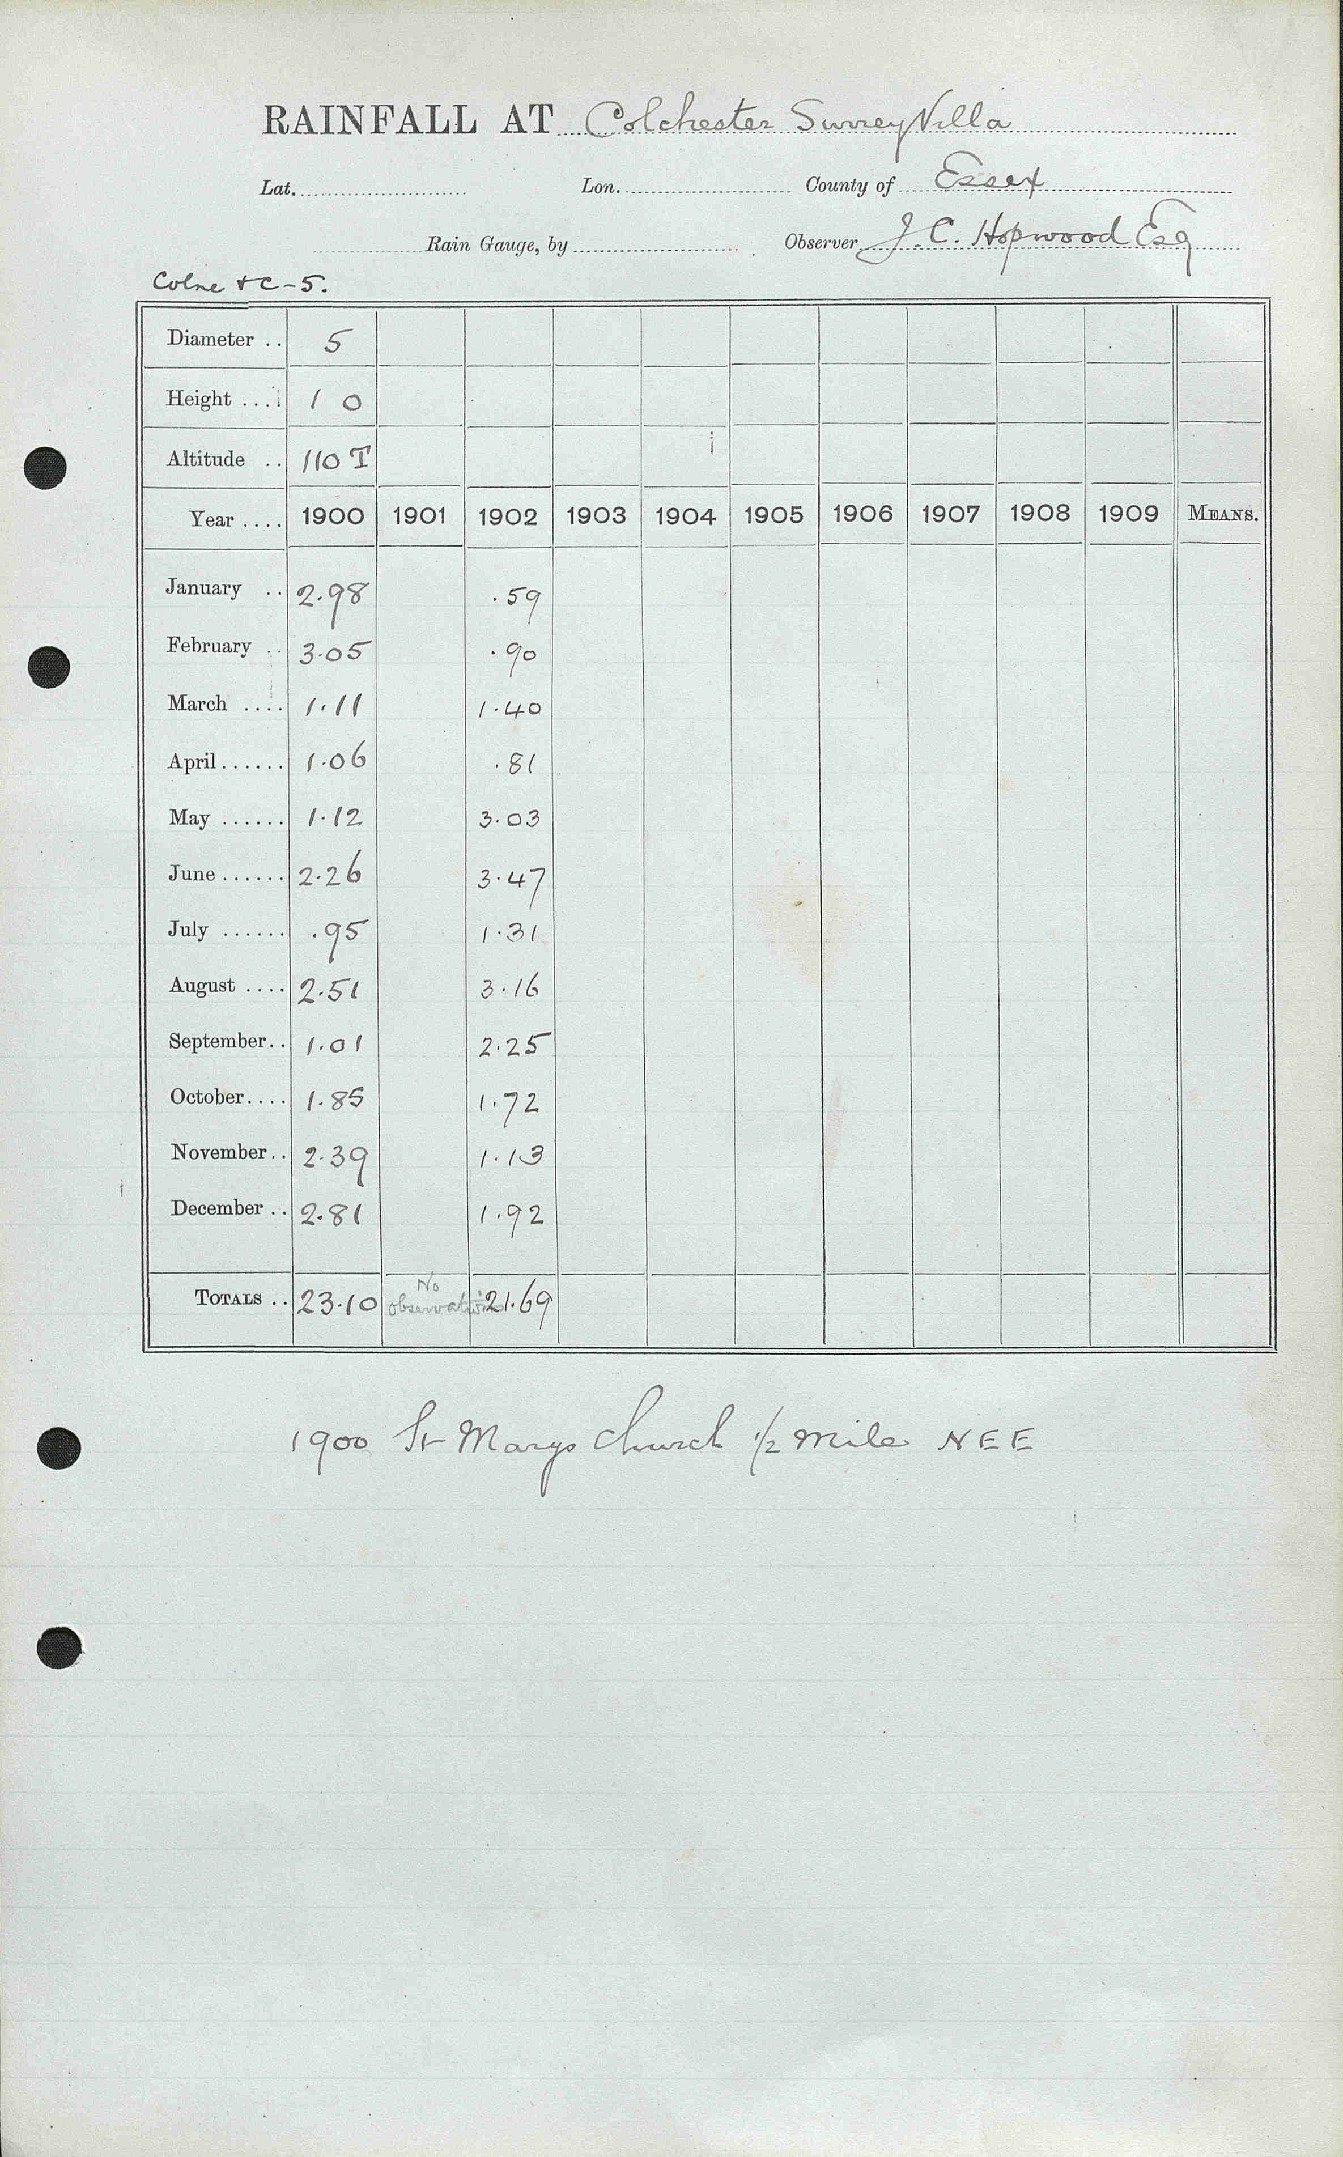 RAINFALL AT Colchester Surrey Villa
Lat. Lon. County of Essex
Rain Gauge, by Observer J. C. Hopwood Esq
Colne & C-5.
Diameter .. 5
Height .... 1 0
Altitude .. 110 T
Year .... 1900 1901 1902 1903 1904 1905 1906 1907 1908 1909 MEANS.
January .. 2.98 .59
February .. 3.05 .90
March .... 1.11 1.40
April ...... 1.06 .81
May ...... 1.12 3.03
June ...... 2.26 3.47
July ...... .95 1.31
August .... 2.51 3.16
September.. 1.01 2.25
October.... 1.85 1.72
November.. 2.39 1.13
December .. 2.81 1.92
TOTALS .. 23.10 No observations 21.69
1900 St Marys Church 1/2 mile NEE